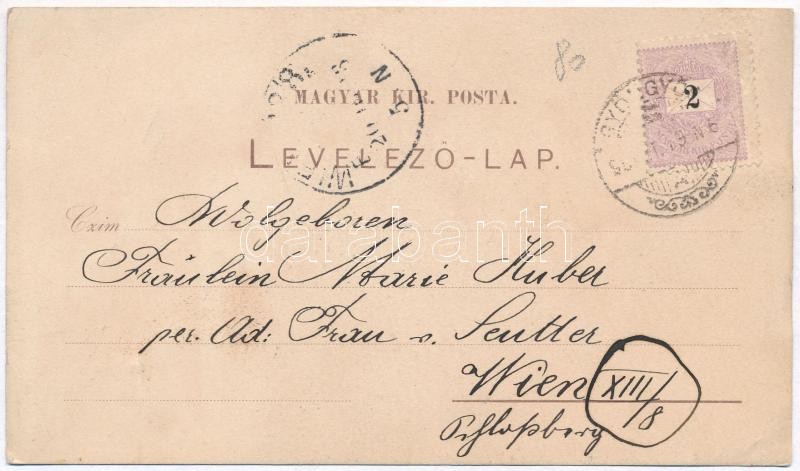 80
2
MAGYAR KIR. POSTA.
LEVELEZŐ-LAP.
Czim Wolgeboren
Fräulein Marie Huber
per. Ad: Frau v. Seutter
Wien XIII/8
Schloßberg
darabanth